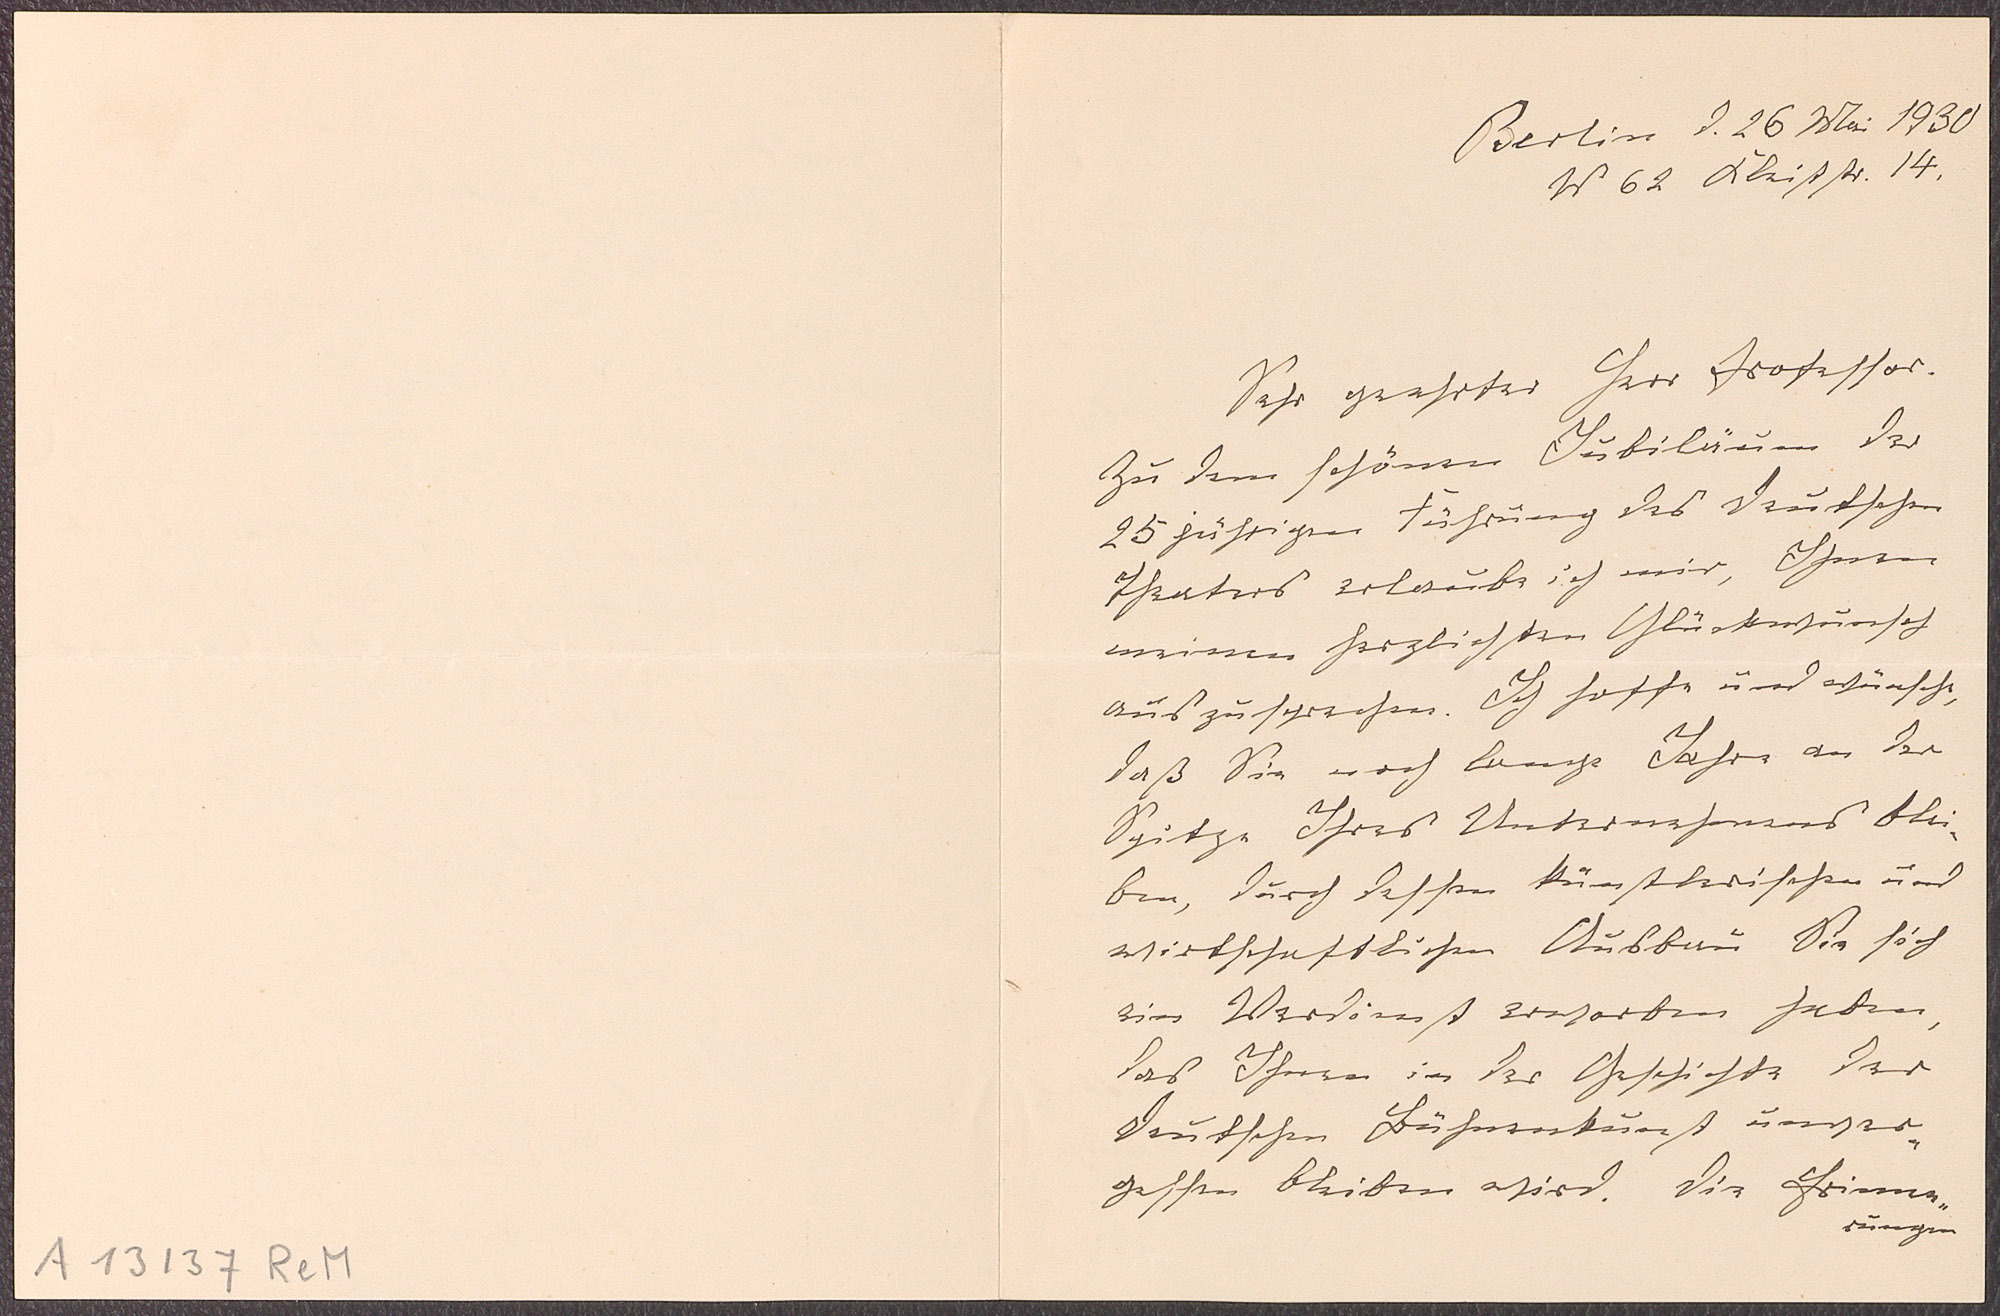 Berlin d. 26 Mai 1930
W 62 Kleiststr. 14.
Sehr geehrter Herr Professor.
Zu dem schönen Jubiläum der
25 jährigen Führung des Deutschen
Theaters erlaube ich mir, Ihnen
meinen herzlichsten Glückwunsch
auszusprechen. Ich hoffe und wünsche,
daß Sie noch lange Jahre an der
Spitze Ihres Unternehmens blei-
ben, durch dessen künstlerischen und
wirtschaftlichen Ausbau Sie sich
ein Verdienst erworben haben,
das Ihnen in der Geschichte der
deutschen Bühnenkunst unver-
gessen bleiben wird. Die Erinne-
rungen
A 13137 ReM